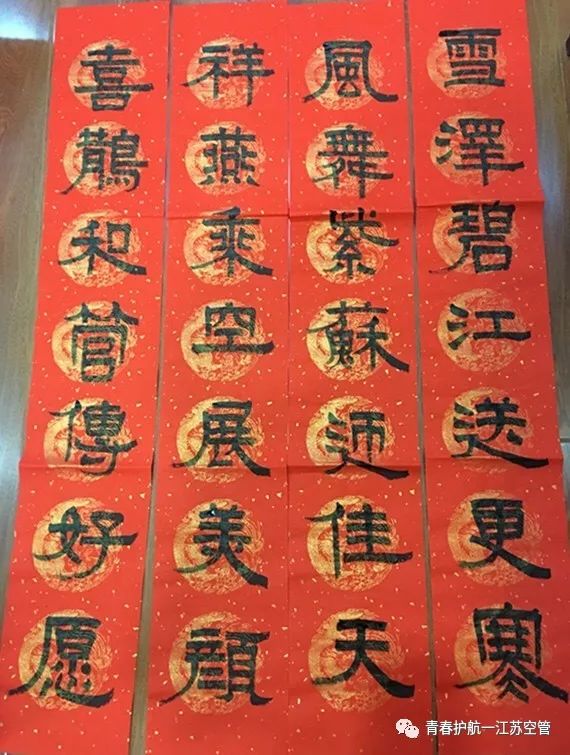 雪澤碧江送更寒
風舞紫蘇迎佳天
祥燕乘空展美顔
喜鵲和管傳好愿
青春护航一江苏空管